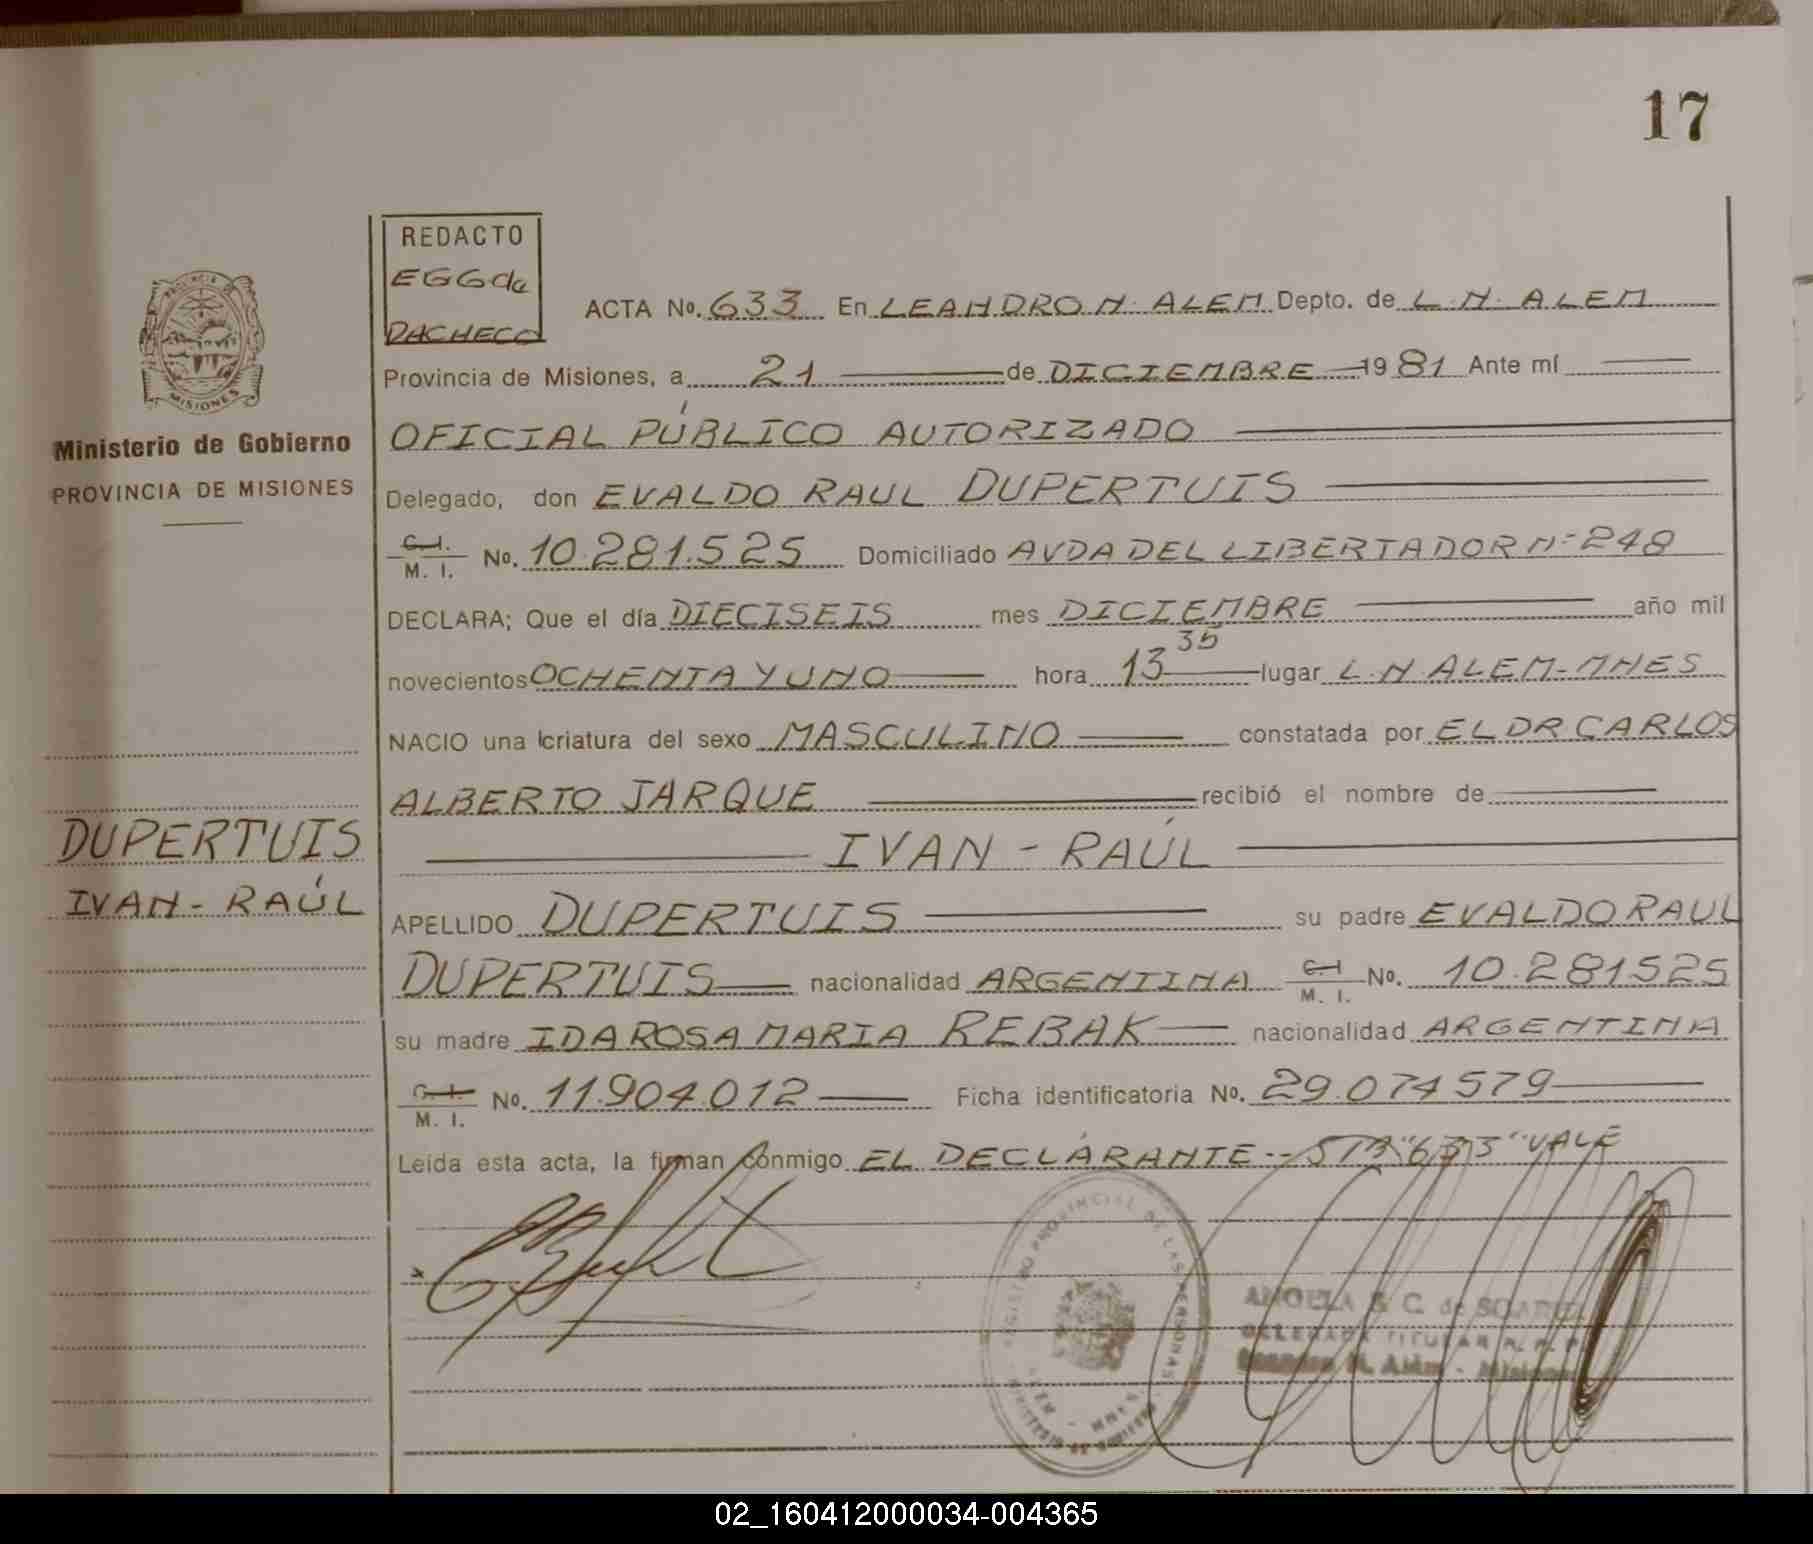 17
REDACTO
EGG de
PACHECO
ACTA No. 633 En LEANDRO N. ALEM Depto. de L.N. ALEM
Provincia de Misiones, a 21 de DICIEMBRE 1981 Ante mí
OFICIAL PÚBLICO AUTORIZADO
Delegado, don EVALDO RAUL DUPERTUIS
C. I.
M. I. No. 10.281.525 Domiciliado AVDA DEL LIBERTADOR Nº 248
DECLARA; Que el día DIECISEIS mes DICIEMBRE año mil
novecientos OCHENTA Y UNO hora 13 35 lugar L.N. ALEM-MNES
NACIO una criatura del sexo MASCULINO constatada por EL DR CARLOS
ALBERTO JARQUE recibió el nombre de
IVAN - RAÚL
APELLIDO DUPERTUIS su padre EVALDO RAUL
DUPERTUIS nacionalidad ARGENTINA C. I. M. I. No. 10.281525
su madre IDA ROSA MARIA REBAK nacionalidad ARGENTINA
C. I.
M. I. No. 11.904.012 Ficha identificatoria No. 29.074579
Leída esta acta, la firman conmigo EL DECLARANTE-- "633" VALE
PROVINCIA
MISIONES
Ministerio de Gobierno
PROVINCIA DE MISIONES
DUPERTUIS
IVAN - RAÚL
REGISTRO PROVINCIAL DE LAS PERSONAS
ANGELA
DELEGADA TITULAR R. P. P.
Leandro N. Alem - Misiones
02_160412000034-004365